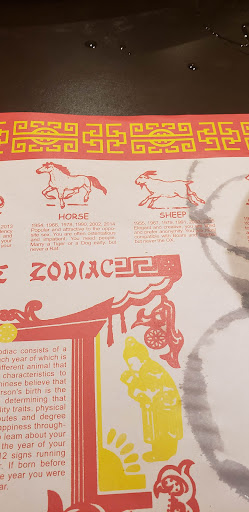 2013
and
your
your
HORSE
1954, 1966, 1978, 1990, 2002, 2014
Popular and attractive to the oppo-
site sex. You are often ostentatious
and impatient. You need people.
Marry a Tiger or a Dog early, but
never a Rat.
SHEEP
Elegant and creative, you are timid
and prefer anonymity. You are most
compatible with
but never the Ox.
E ZODIAC
odiac consists of a
ch year of which is
ifferent animal that
characteristics to
hinese believe that
erson's birth is the
determining that
lity traits, physical
butes and degree
appiness through-
o learn about your
the year of your
12 signs running
r. If born before
e year you were
ar.